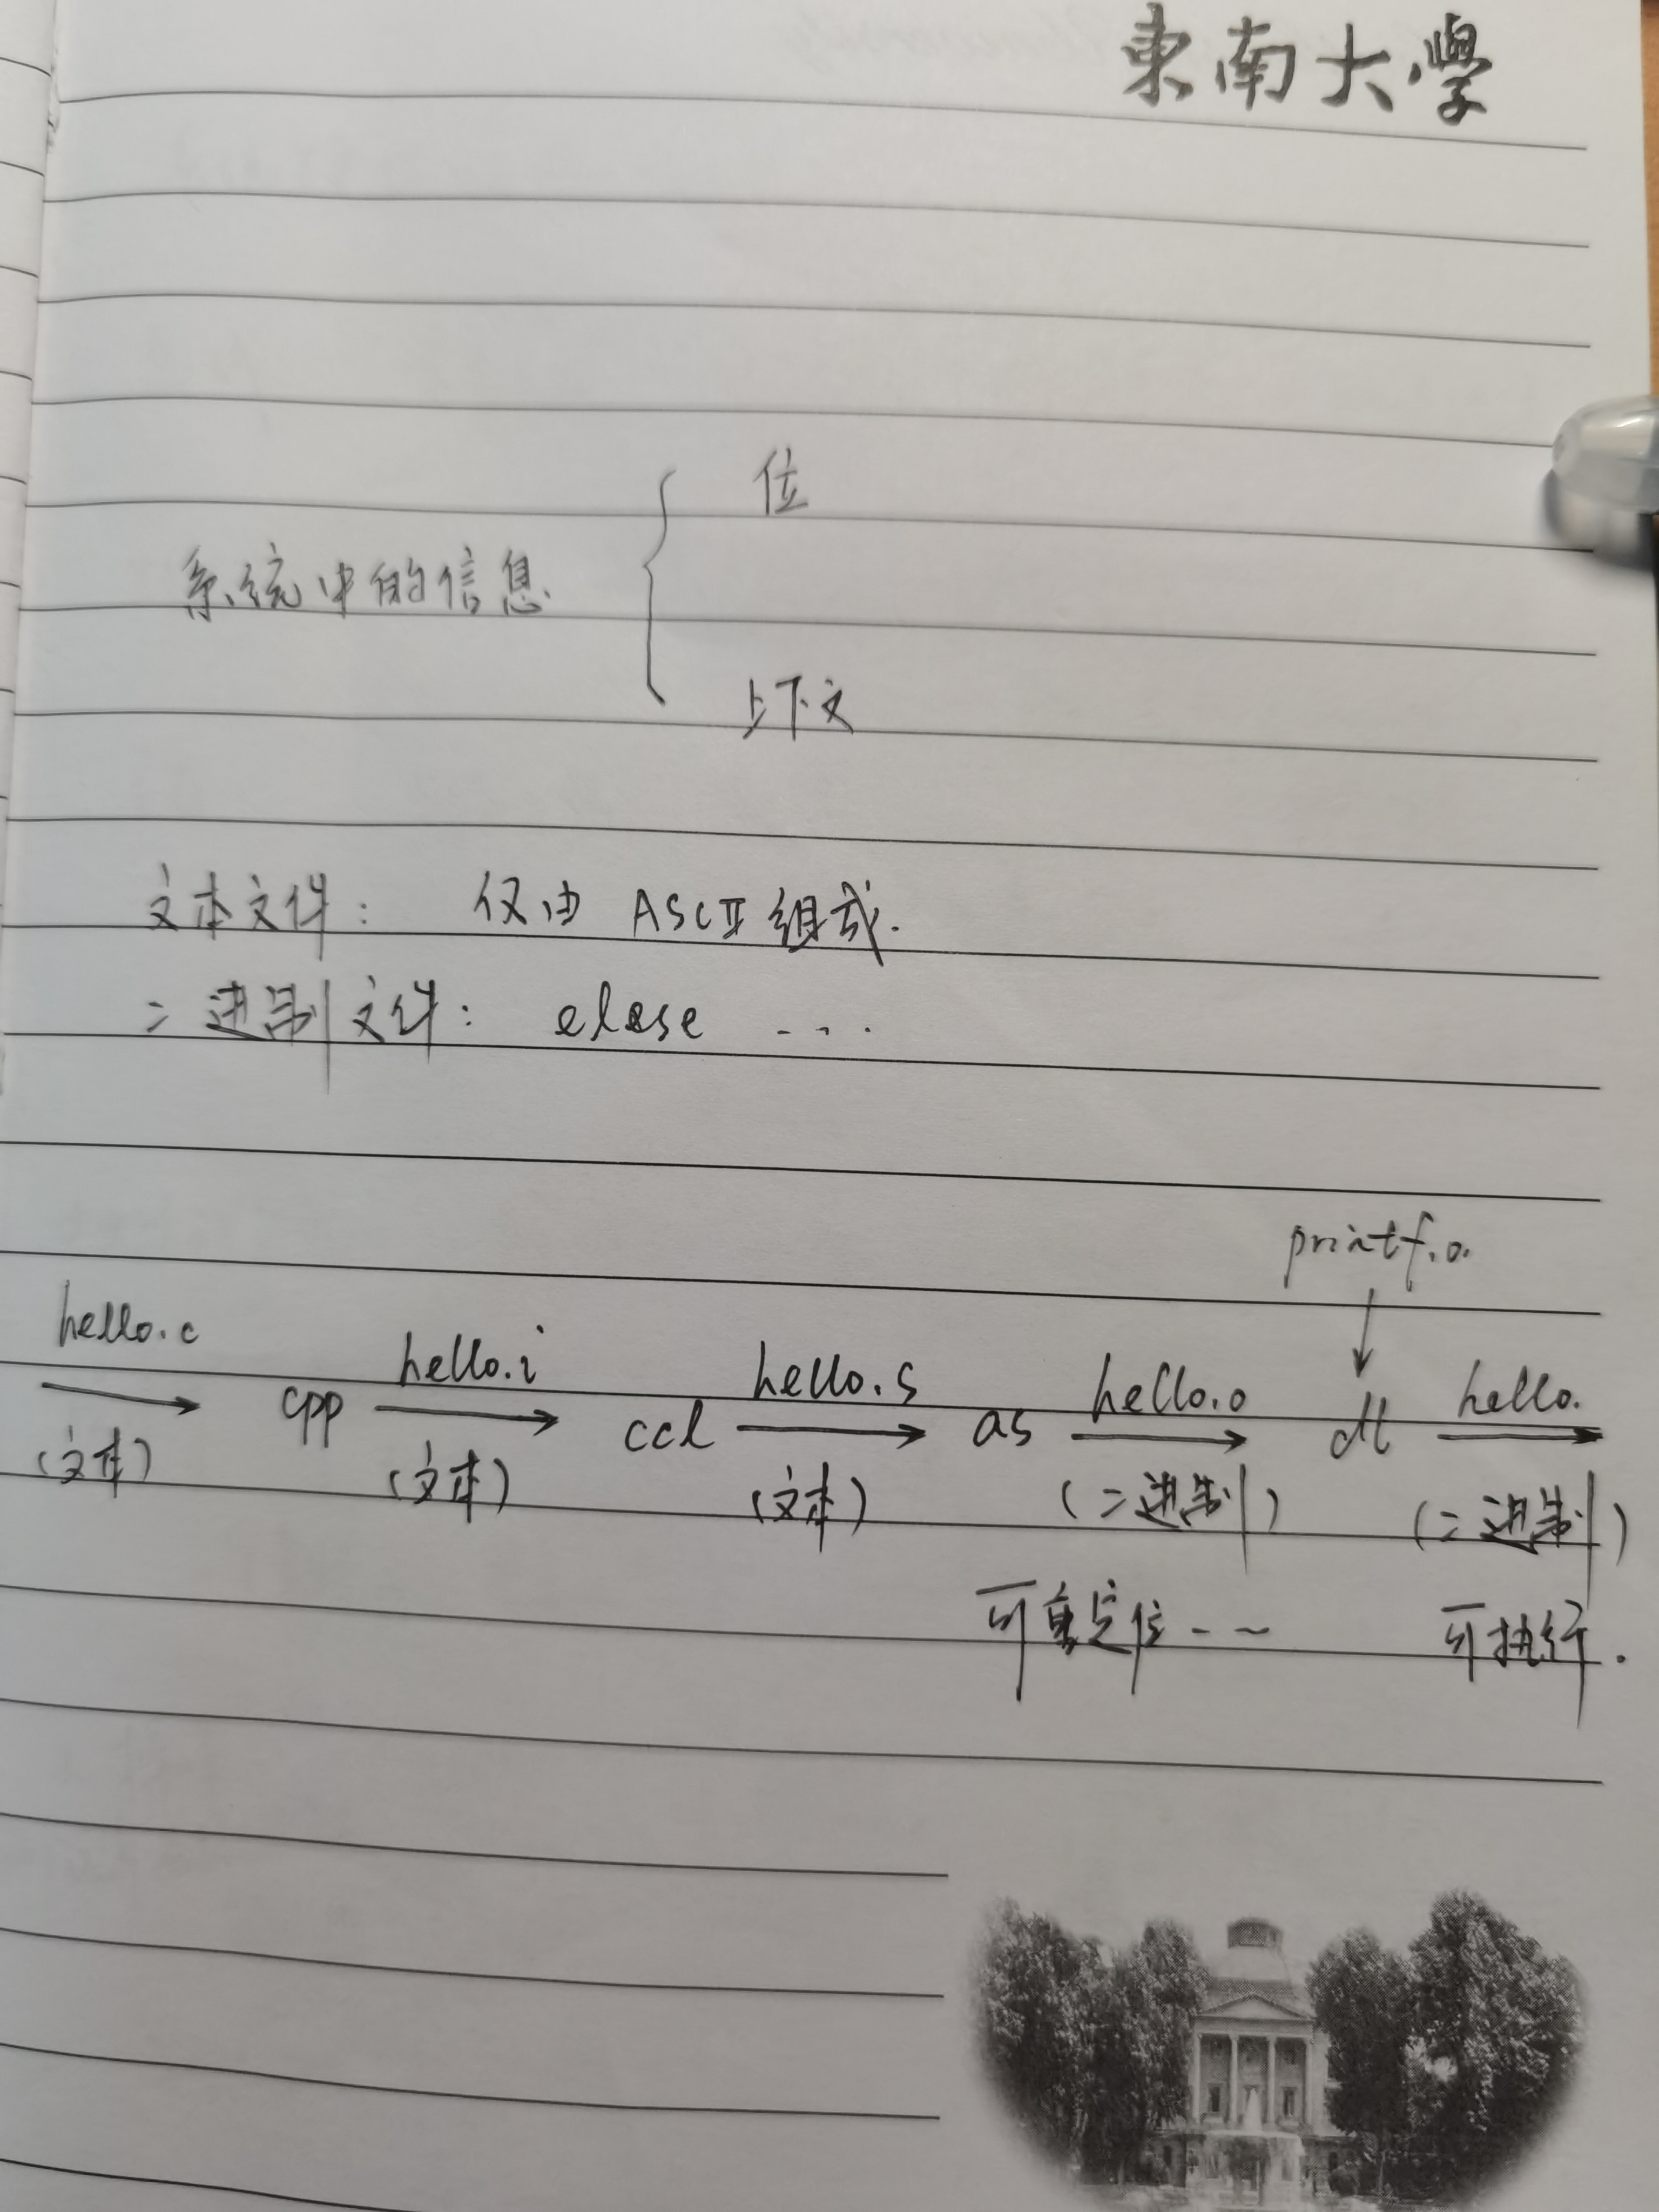 東南大學
位
系统中的信息
上下文
文本文件： 仅由 ASCII 组成.
二进制文件： elese ...
printf.o.
hello.c hello.i hello.s hello.o hello.
cpp ccl as dl
(文本) (文本) (文本) (二进制) (二进制)
可重定位 -- 可执行.